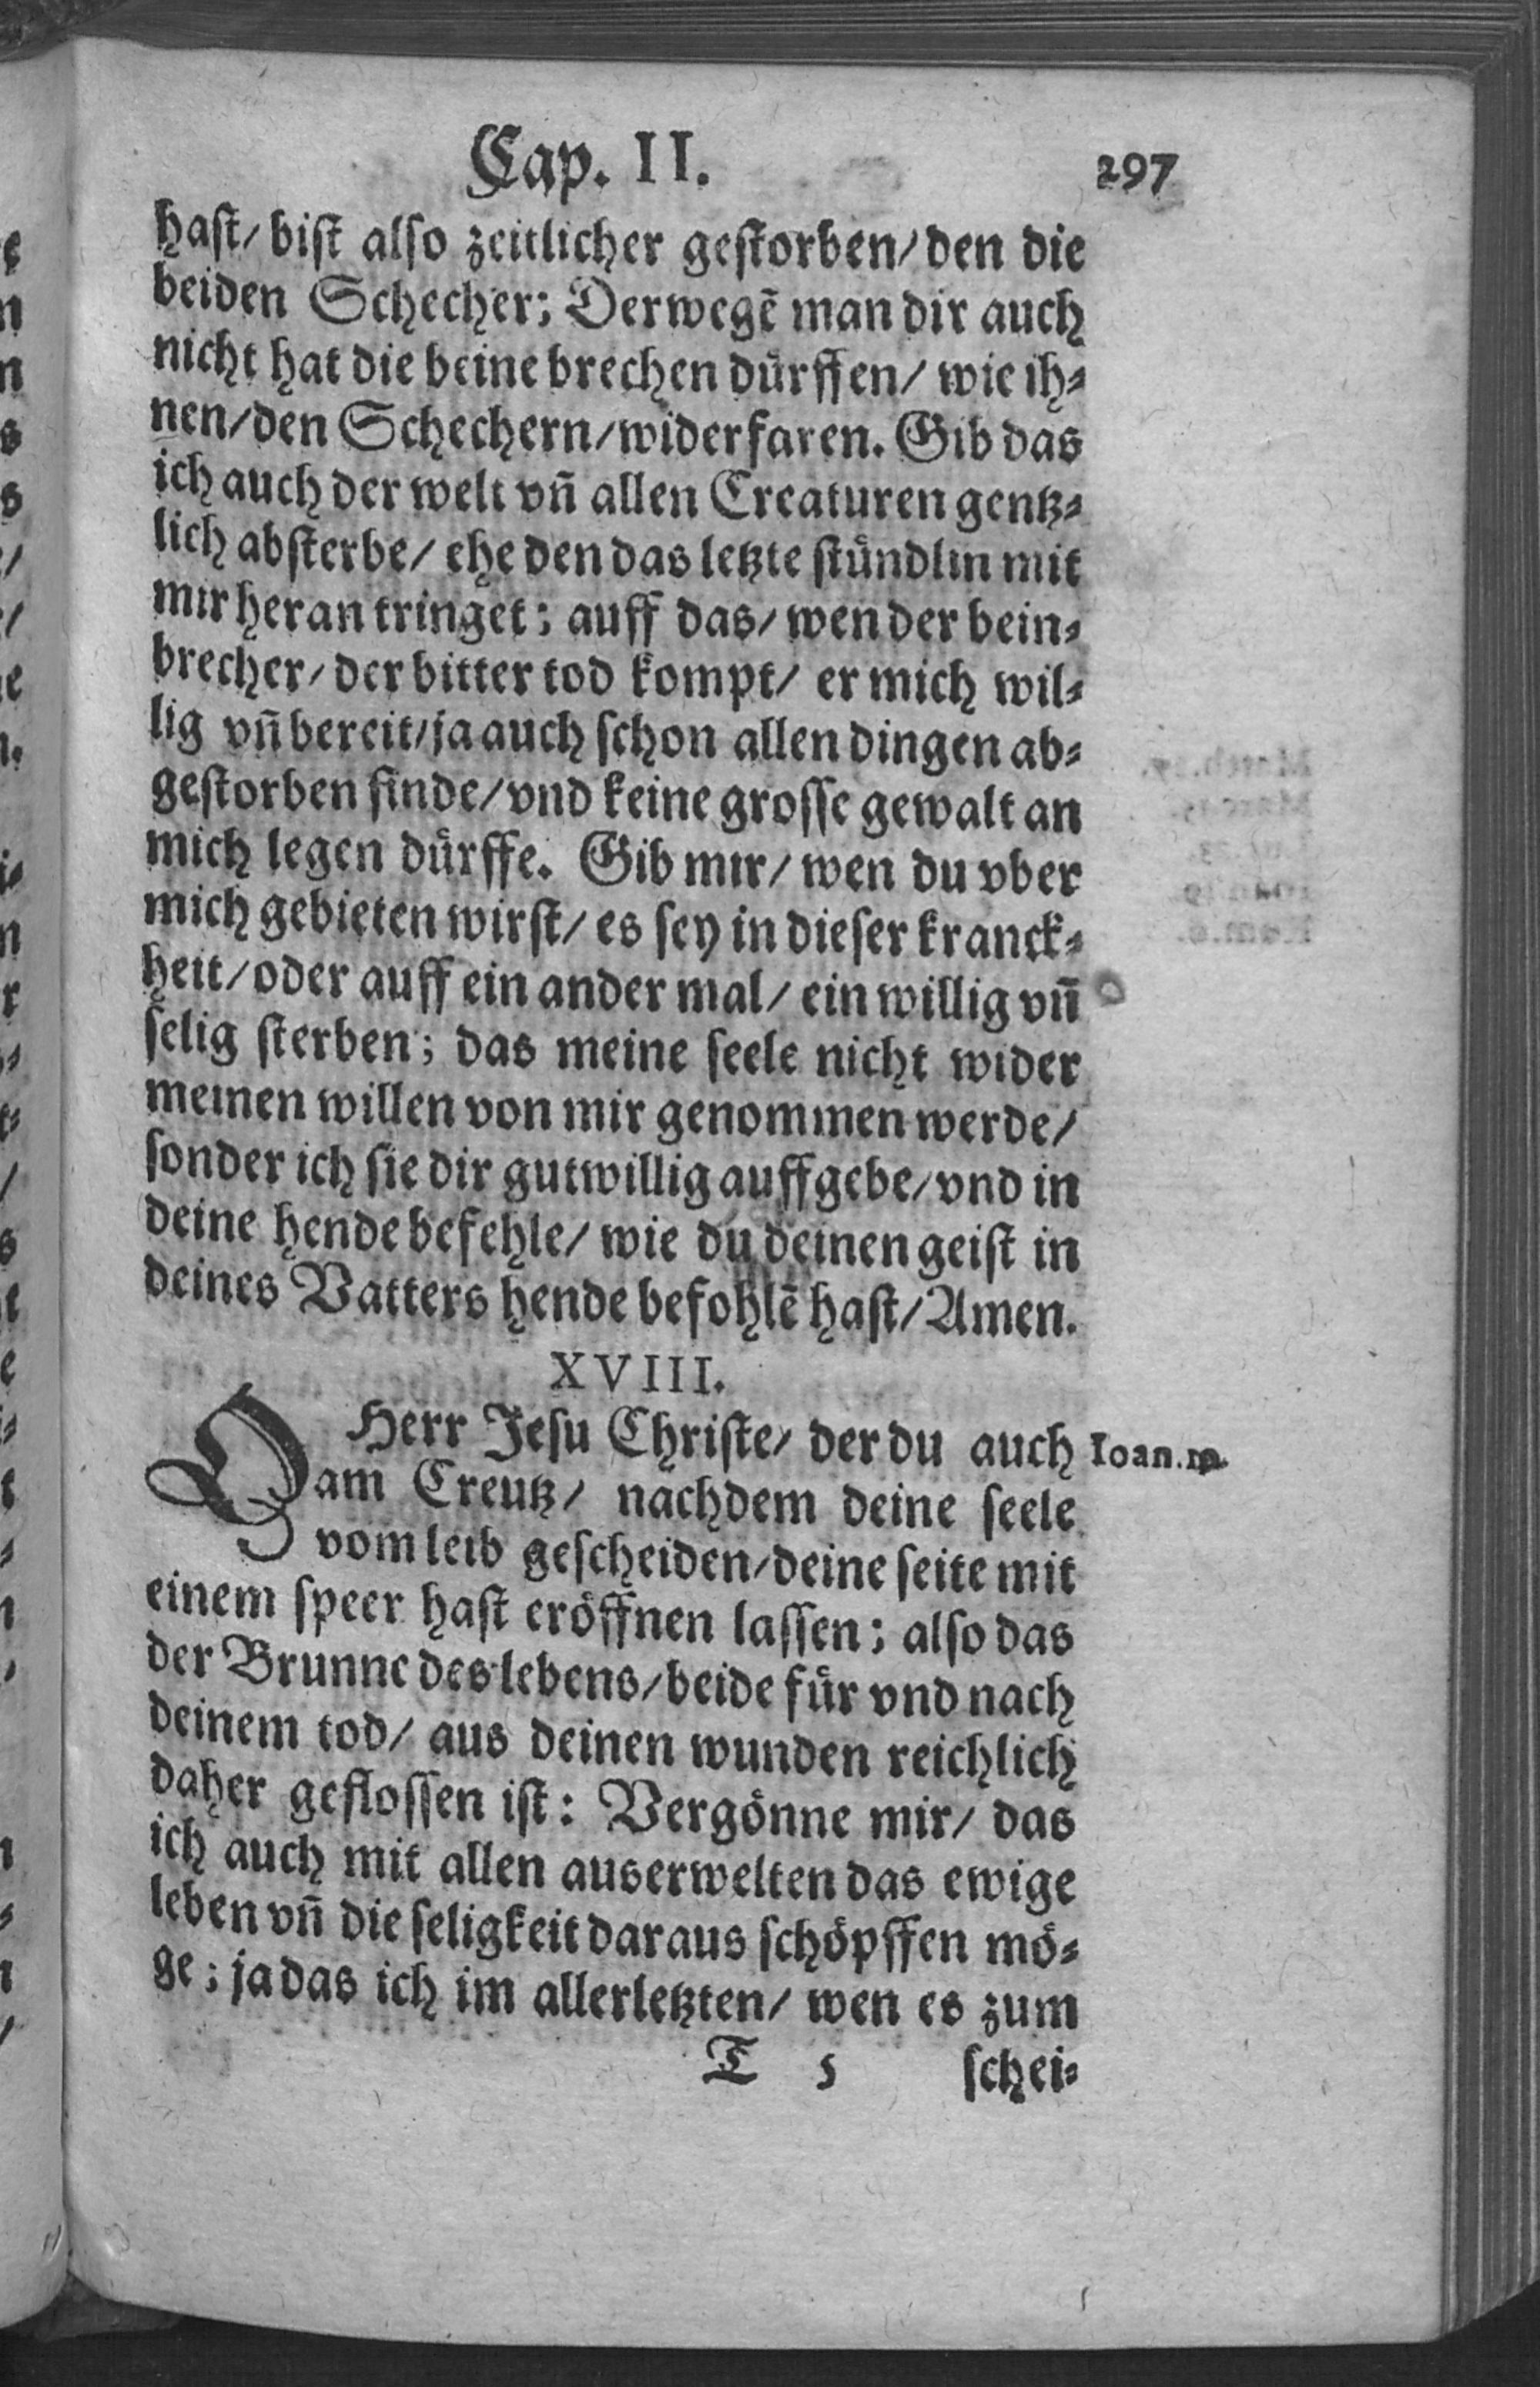 Cap. II.
297
hast/ bist also zeitlicher gestorben/ den die
beiden Schecher; Derwegē man dir auch
nicht hat die beine brechen dürffen/ wie ih⸗
nen/ den Schechern/ widerfaren. Gib das
ich auch der welt vn̄ allen Creaturen gentz⸗
lich absterbe/ ehe den das letzte stündlin mit
mir heran tringet; auff das/ wen der bein⸗
brecher/ der bitter tod kompt/ er mich wil⸗
lig vn̄ bereit/ ja auch schon allen dingen ab⸗
gestorben finde/ vnd keine grosse gewalt an
mich legen dürffe. Gib mir/ wen du vber
mich gebieten wirst/ es sey in dieser kranck⸗
heit/ oder auff ein ander mal/ ein willig vn̄
selig sterben; das meine seele nicht wider
meinen willen von mir genommen werde/
sonder ich sie dir gutwillig auffgebe/ vnd in
deine hende befehle/ wie du deinen geist in
deines Vatters hende befohlē hast/ Amen.
XVIII.
O Herr Jesu Christe/ der du auch
Ioan.
am Creutz/ nachdem deine seele
vom leib gescheiden/ deine seite mit
einem speer hast eröffnen lassen; also das
der Brunne des lebens/ beide für vnd nach
deinem tod/ aus deinen wunden reichlich
daher geflossen ist: Vergönne mir/ das
ich auch mit allen auserwelten das ewige
leben vn̄ die seligkeit daraus schöpffen mö⸗
ge; ja das ich im allerletzten/ wen es zum
T 5
schei⸗